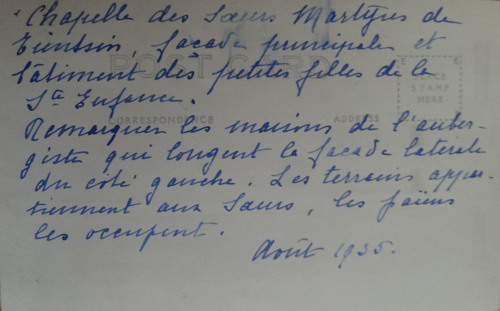 Chapelle des Sœurs Martyres de
Tientsin, façade principale et
bâtiment des petites filles de la
Ste Enfance.
POST CARD
PLACE
STAMP
HERE
CORRESPONDENCE
ADDRESS
Remarquer les maisons de l'auber-
giste qui longent la façade latérale
du côté gauche. Les terrains appar-
tiennent aux Sœurs, les païens
les occupent.
Août 1935.